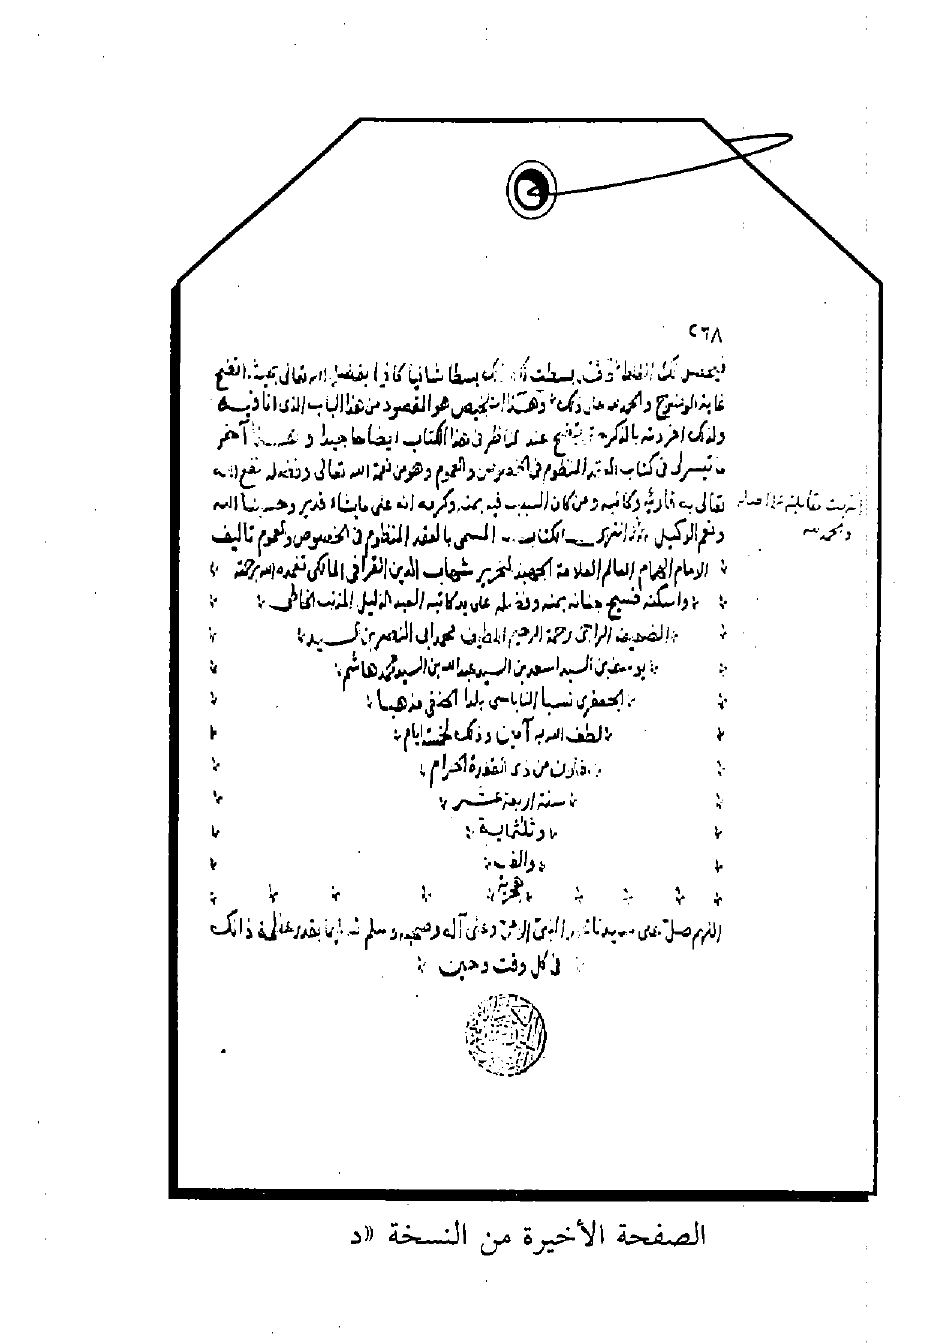 ٢٦٨
بسطت لك ذلك بسطا شافيا كافيا بفضل الله تعالى اتضح
غاية الوضوح والحمد لله على ذلك وهذا التلخيص هو المقصود من هذا الباب الذى انا فيه
ولذلك افردته بالذكر عند الناظر فى هذا الكتاب ايضاحا جيدا وهذا آخر
ما تيسر لى فى كتاب العقد المنظوم فى الخصوص والعموم وهو من نعمة الله تعالى وفضله نفع الله
تعالى به قاريه وكاتبه ومن كان السبب فيه بمنه وكرمه انه على ما يشاء قدير وحسبنا الله
ونعم الوكيل الكتاب المسمى بالعقد المنظوم فى الخصوص والعموم تاليف
الامام الهمام العالم العلامة الجهبذ النحرير شهاب الدين القرافى المالكى تغمده الله برحمته
واسكنه فسيح جنانه بمنه وفضله على يد كاتبه العبد الذليل المذنب الخاطى
الضعيف الراجى رحمة الرحيم اللطيف محمد ابى النصر بن السيد
يوسف بن السيد اسعد بن السيد عبدالله بن السيد محمد هاشم
الجعفرى نسبا النابلسى بلدا الحنفى مذهبا
لطف الله به آمين وذلك لخمسة ايام
من ذى القعدة الحرام
سنة اربعة عشر
وثلثماية
والف
هجرية
اللهم صل على سيدنا محمد النبى الامى وعلى آله وصحبه وسلم تسليما بقدر عظمة ذاتك
فى كل وقت وحين
مقابلته على اصله
والحمد لله
الصفحة الأخيرة من النسخة «د